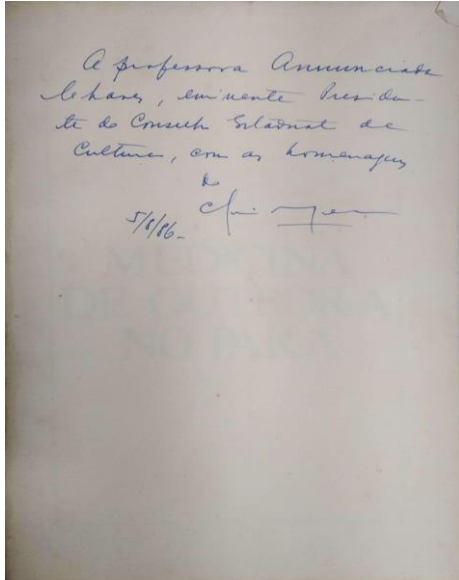 A professora Annunciada
Chaves, eminente Presiden-
te do Conselho Estadual de
Cultura, com as homenagens
do
5/8/86-
MEDICINA
DE OUTRORA
NO PARÁ